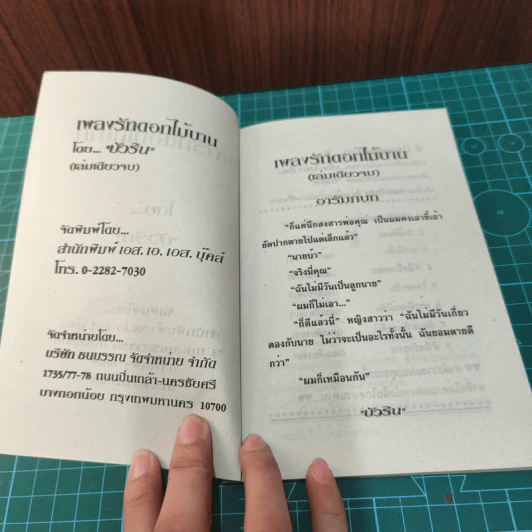 เพลงรักดอกไม้บาน
โดย... "บัวริน"
(เล่มเดียวจบ)
จัดพิมพ์โดย...
สำนักพิมพ์ เอส. เอ. เอส. บุ๊คส์
โทร. 0-2282-7030
จัดจำหน่ายโดย...
บริษัท ธนบรรณ จัดจำหน่าย จำกัด
1735/77-78 ถนนปิ่นเกล้า-นครชัยศรี
บางกอกน้อย กรุงเทพมหานคร 10700
เพลงรักดอกไม้บาน
(เล่มเดียวจบ)
อารัมภบท
"ก็แค่นึกสงสารพ่อคุณ เป็นแผลงเลาขี้เถ้า
ยัดปากตายไปแต่เล็กแล้ว"
"นายบ้า"
"จริงนี่คุณ"
"ฉันไม่มีวันเป็นลูกนาย"
"ผมก็ไม่เอา..."
"ก็ดีแล้วนี่" หญิงสาวว่า "ฉันไม่มีวันเกี่ยว
ดองกับนาย ไม่ว่าจะเป็นอะไรทั้งนั้น ฉันยอมตายดี
กว่า"
"ผมก็เหมือนกัน"
"บัวริน"